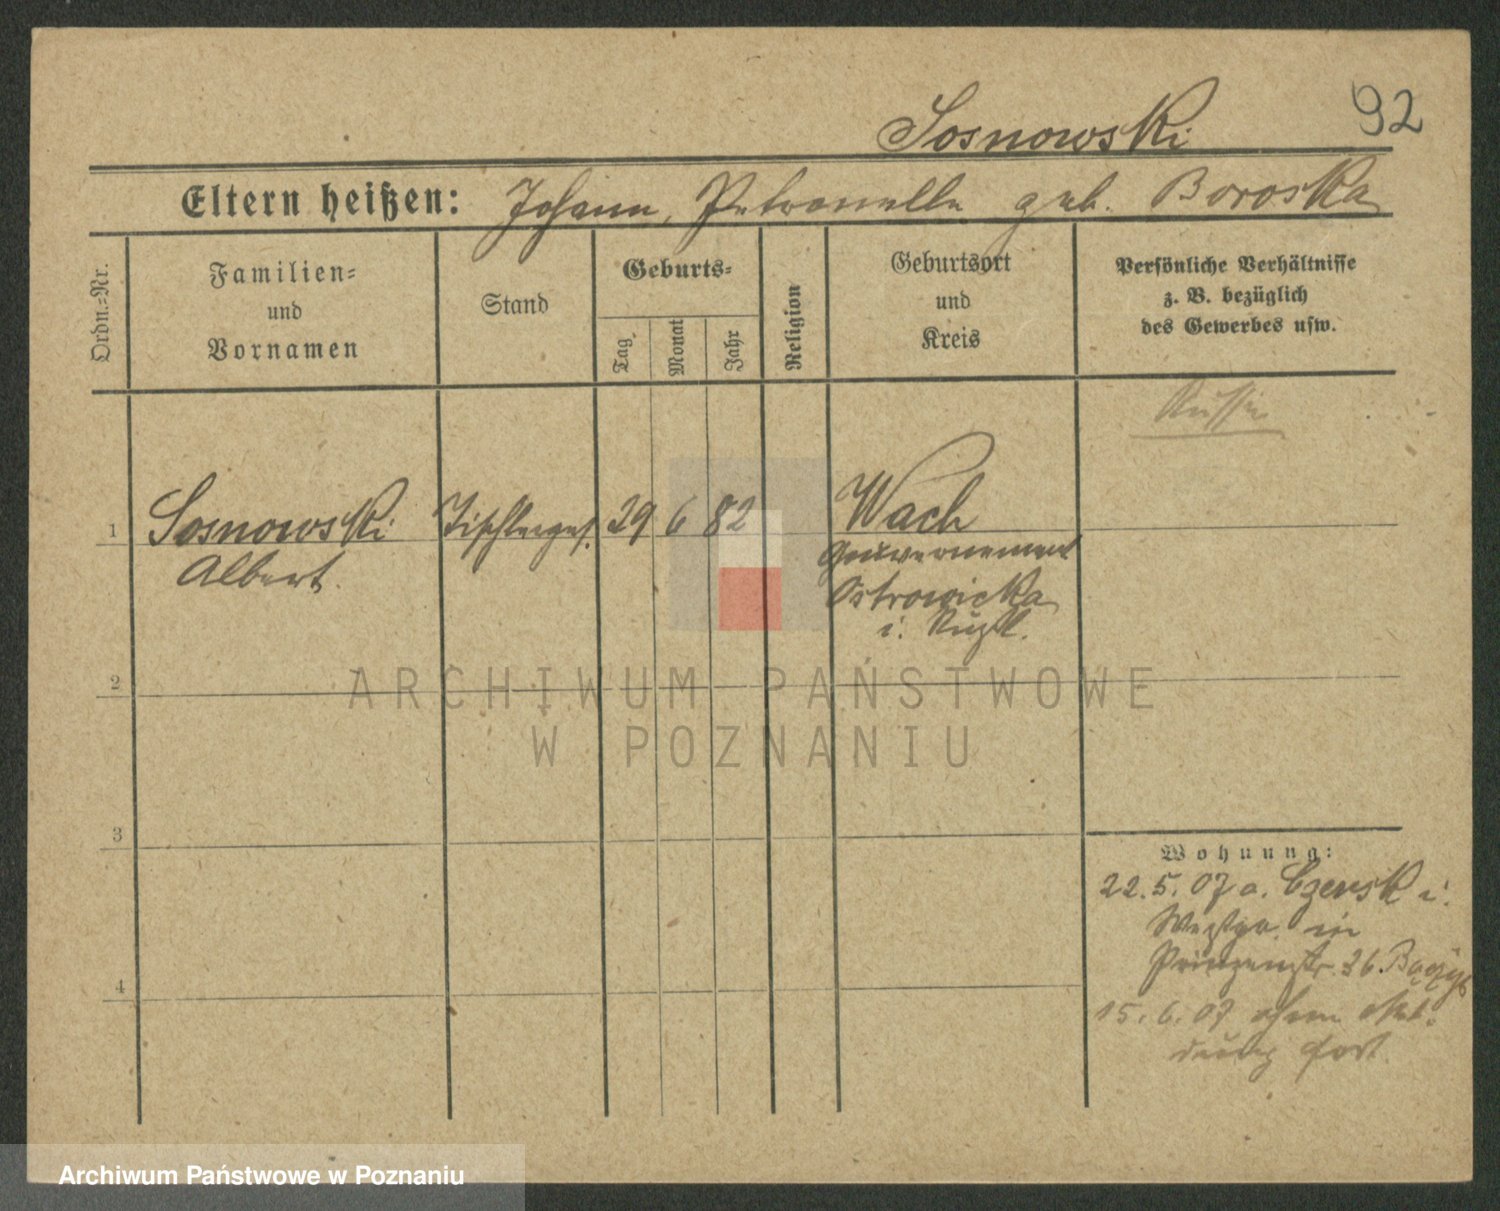 92
Sosnowski
Eltern heißen: Johann, Petronella geb. Boroska
Ordn.-Nr.
Familien-
und
Vornamen
Stand
Geburts-
Tag
Monat
Jahr
Religion
Geburtsort
und
Kreis
Persönliche Verhältnisse
z. B. bezüglich
des Gewerbes usw.
Russe
1 Sosnowski Tischlerges. 29 6 82 Wach
Albert.
Gouvernement
Ostrowicka
i. Rußl.
2
ARCHIWUM PAŃSTWOWE
W POZNANIU
3
Wohnung:
22.5.07 a. Czersk i.
Westpr. in
Prinzenstr. 36.
4
15.6.07 ohne Mel-
dung fort
Archiwum Państwowe w Poznaniu